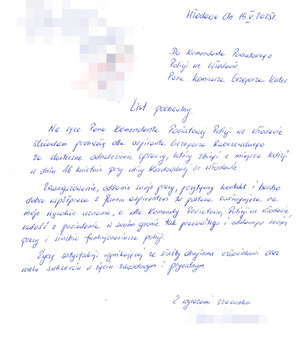 Włodawa dn. 15.V.2015r.
Do Komendanta Powiatowego
Policji we Włodawie
Pana Grzegorza
List pochwalny
Na ręce Pana Komendanta Powiatowej Policji we Włodawie
składam pochwałę dla aspiranta Grzegorza
za skuteczne odnalezienie sprawcy, który zbiegł z miejsca kolizji
w dniu 16 kwietnia przy ulicy we Włodawie.
Zaangażowanie, oddanie swojej pracy, pozytywny kontakt i bardzo
dobra współpraca z Panem aspirantem to postawa zasługująca na
moje wysokie uznanie, a dla Komendy Powiatowej Policji we Włodawie,
radość z posiadania w swoim gronie tak pracowitego i oddanego swojej
pracy i funkcjonariusza policji.
Życzę satysfakcji wynikającej ze służby drugiemu człowiekowi oraz
wielu sukcesów w życiu zawodowym i prywatnym.
Z wyrazami szacunku